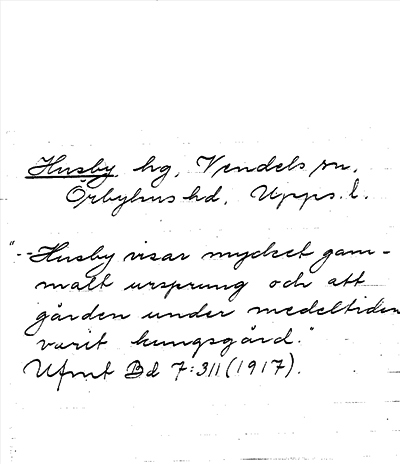 Husby hg, Vendels sn.
Örbyhus hd, Upps. l.
"--Husby visar mycket gam-
malt ursprung och att
gården under medeltiden
varit kungsgård."
Ufmt Bd 7:311 (1917).